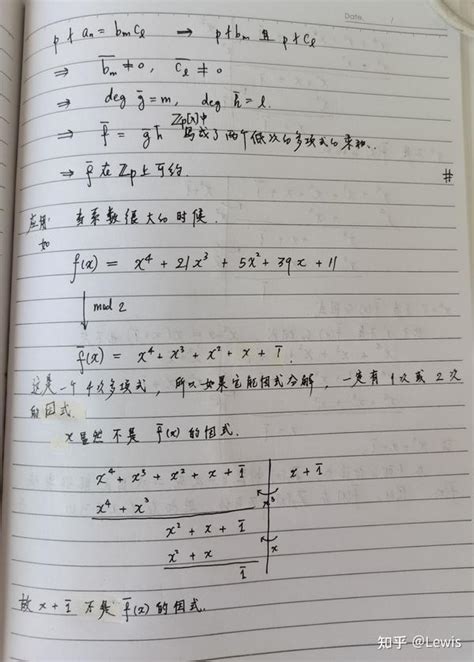 Date. /
p∤aₙ = bₘcₗ → p∤bₘ 且 p∤cₗ
⇒ b̄ₘ ≠ 0, c̄ₗ ≠ 0
⇒ deg ḡ = m, deg h̄ = l.
⇒ f̄ = ḡh̄ Zp[x]中 写成了两个低次的多项式的乘积.
⇒ f̄ 在 Zp 上可约. #
应用: 当系数很大的时候.
如
f(x) = x⁴ + 21x³ + 5x² + 39x + 11
↓ mod 2
f̄(x) = x⁴ + x³ + x² + x + 1̄.
这是一个4次多项式, 所以如果它能因式分解, 一定有1次或2次
的因式.
x 显然不是 f̄(x) 的因式.
x⁴ + x³ + x² + x + 1̄ | x + 1̄
x⁴ + x³ | x³
x² + x + 1̄
x² + x | x
1̄
故 x + 1̄ 不是 f̄(x) 的因式.
知乎 @Lewis